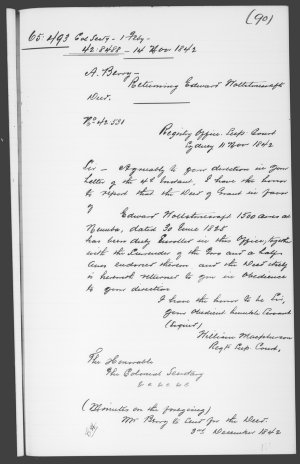 (90)
65.493 Col Secy - 1 Feby -
42.8488 - 14 Nov 1842
A. Berry -
Returning Edward Wollstonecraft
Deed.
No 42.531
Registry Office. Sup. Court
Sydney 11 Nov 1842
Sir - Agreeably to your direction in your
Letter of the 4th Instant, I have the honor
to report that the Deed of Grant in favor
of
Edward Wollstonecraft 1500 acres at
Numba, dated 30 June 1825
has been duly Enrolled in this Office, together
with the Surrender of the two and a half
Acres endorsed thereon and the Deed itself
is herewith returned to you in Obedience
to your direction
I have the honor to be Sir,
Your Obedient humble Servant
(Signed)
William Macpherson
Regr Sup. Court,
The Honorable
The Colonial Secretary
(Minutes on the foregoing)
Mr Berry to send for the Deed.
3rd December 1842